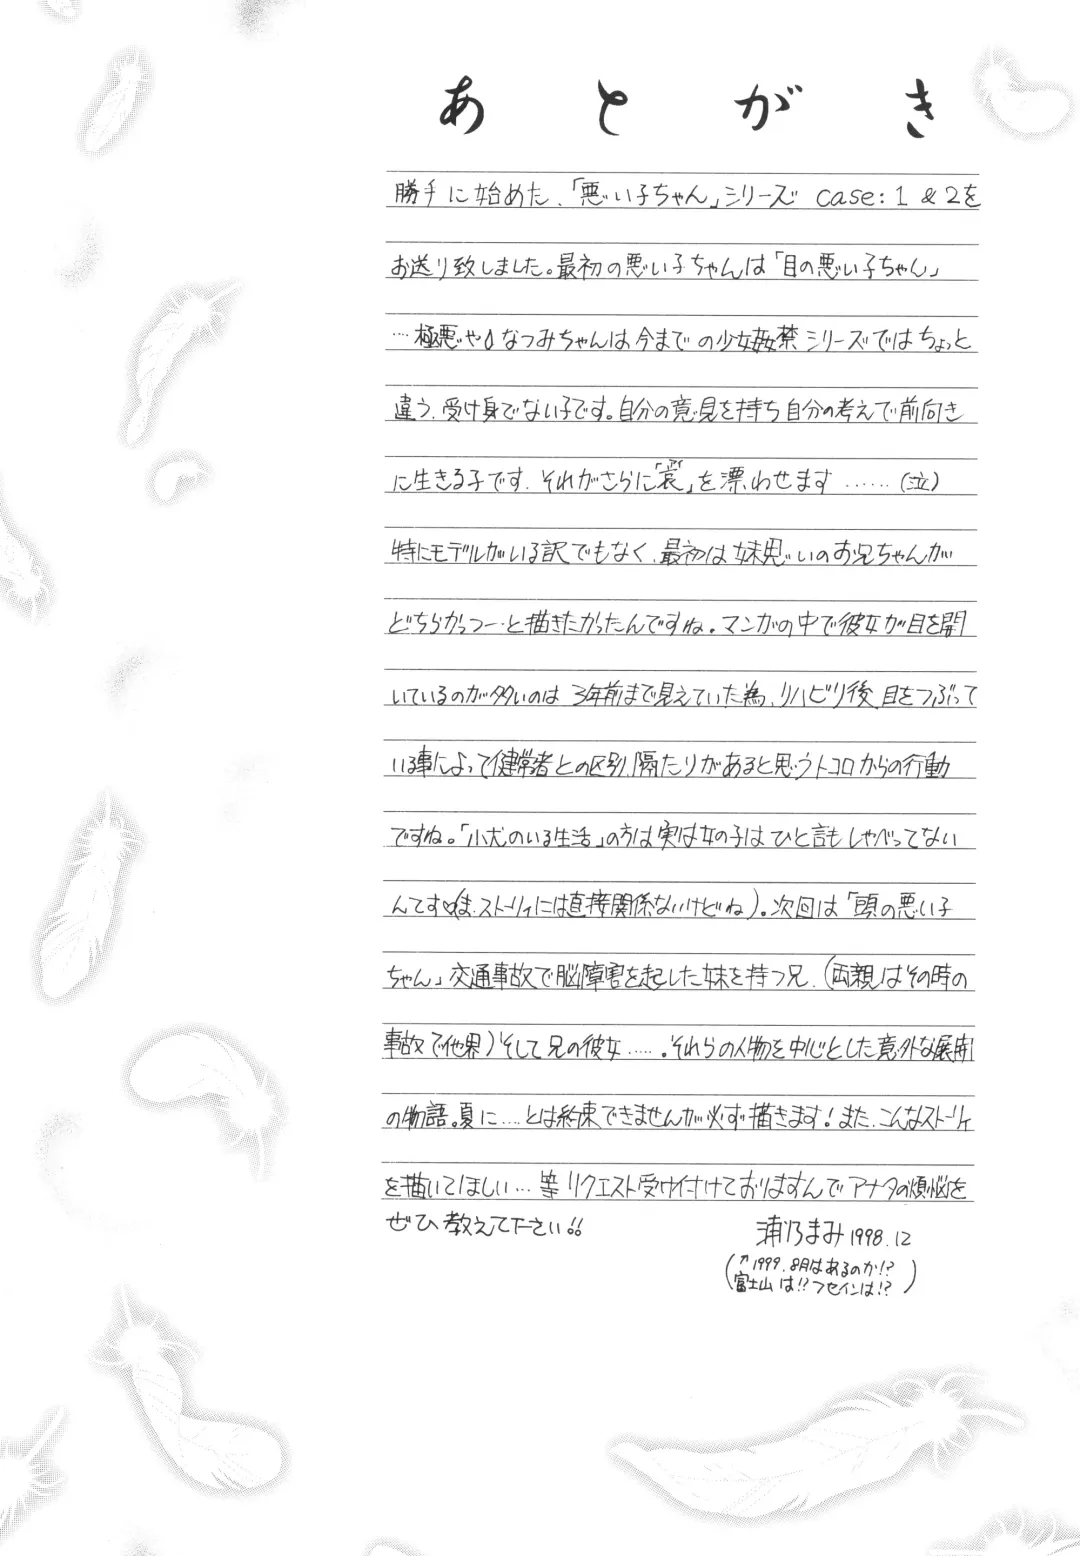 あとがき
勝手に始めた、「悪い子ちゃん」シリーズ case:1&2を
お送り致しました。最初の悪い子ちゃんは「目の悪い子ちゃん」
…極悪や なつみちゃんは今までの少女姦禁シリーズではちょっと
違う、受け身でない子です。自分の意見を持ち自分の考えで前向き
に生きる子です、それがさらに「哀」を漂わせます……(泣)
特にモデルがいる訳でもなく、最初は妹思いのお兄ちゃんが
どちらかっつーと描きたかったんですね。マンガの中で彼女が目を開
いているのが多いのは 3年前まで見えていた為、リハビリ後、目をつぶって
いる事によって健常者との区別、隔たりがあると思うトコロからの行動
ですね。「小犬のいる生活」の方は実は女の子はひと言もしゃべってない
んです(ま、ストーリィには直接関係ないけどね)。次回は「頭の悪い子
ちゃん」交通事故で脳障害を起した妹を持つ兄、(両親はその時の
事故で他界)そして兄の彼女……。それらの人物を中心とした意外な展開
の物語。夏に…とは約束できませんが必ず描きます!また、こんなストーリィ
を描いてほしい…等リクエスト受け付けておりますんでアナタの煩悩を
ぜひ教えて下さい!!
浦乃まみ 1998.12
(↑1999.8月はあるのか!?
富士山は!? フセインは!?)